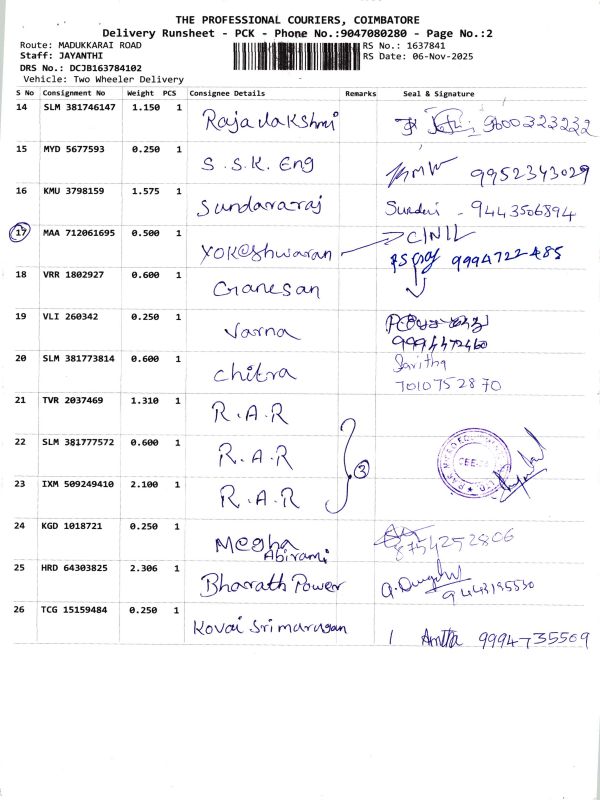 THE PROFESSIONAL COURIERS, COIMBATORE
Delivery Runsheet - PCK - Phone No.:9047080280 - Page No.:2
Route: MADUKKARAI ROAD RS No.: 1637841
Staff: JAYANTHI RS Date: 06-Nov-2025
DRS No.: DCJB163784102
Vehicle: Two Wheeler Delivery
S No Consignment No Weight PCS Consignee Details Remarks Seal & Signature
14 SLM 381746147 1.150 1 Rajalakshmi 9600323232
15 MYD 5677593 0.250 1 S.S.K. Eng 9952343029
16 KMU 3798159 1.575 1 Sundararaj Sundri - 9443506894
17 MAA 712061695 0.500 1 Yokeshwaran CINIL
9994722485
18 VRR 1802927 0.600 1 Ganesan
19 VLI 260342 0.250 1 Varna
9994472460
20 SLM 381773814 0.600 1 Chitra Savitha
7010752870
21 TVR 2037469 1.310 1 R.A.R
22 SLM 381777572 0.600 1 R.A.R
3
23 IXM 509249410 2.100 1 R.A.R
24 KGD 1018721 0.250 1 Megha
Abirami 8754252806
25 HRD 64303825 2.306 1 Bharath Power
9443195530
26 TCG 15159484 0.250 1 Kovai Sri murugan
1 Amitha 9994735509